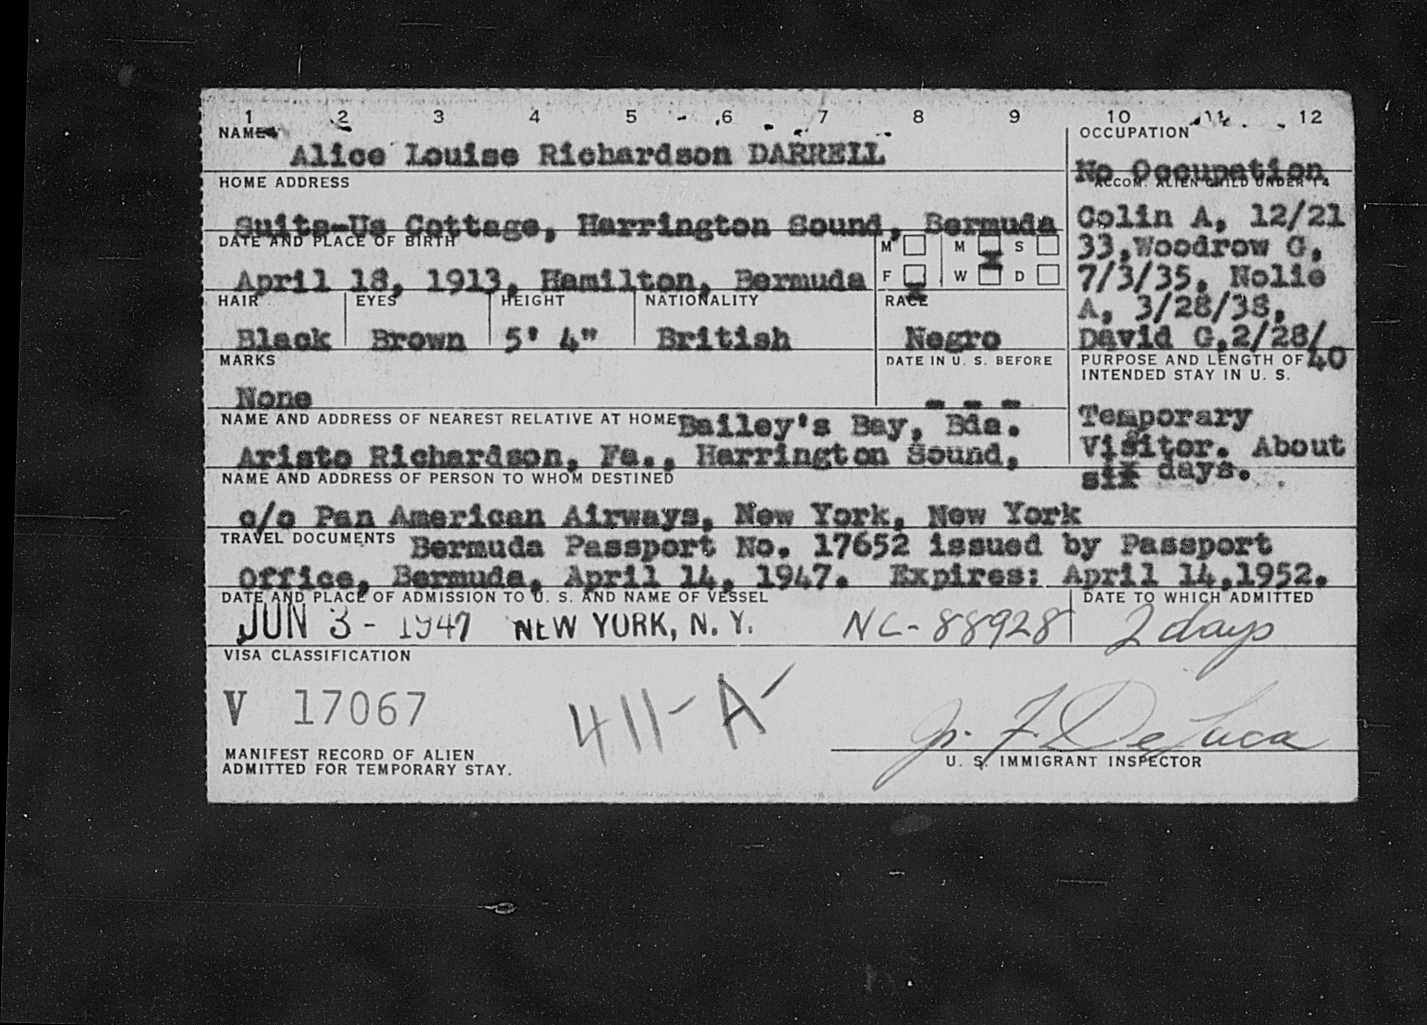 1 2 3 4 5 6 7 8 9 10 11 12
NAME
Alice Louise Richardson DARRELL
OCCUPATION
No Occupation
HOME ADDRESS
Suits-Us Cottage, Harrington Sound, Bermuda
ACCOM. ALIEN CHILD UNDER 14
Colin A, 12/21
33,Woodrow G,
7/3/35, Nolie
A, 3/28/38,
David G,2/28/
40
DATE AND PLACE OF BIRTH
April 18, 1913, Hamilton, Bermuda
M M S
F W D
HAIR EYES HEIGHT NATIONALITY RACE
Black Brown 5' 4" British Negro
MARKS
None
DATE IN U. S. BEFORE
- - -
PURPOSE AND LENGTH OF
INTENDED STAY IN U. S.
Temporary
Visitor. About
six days.
NAME AND ADDRESS OF NEAREST RELATIVE AT HOME Bailey's Bay, Bda.
Aristo Richardson, Fa., Harrington Sound,
NAME AND ADDRESS OF PERSON TO WHOM DESTINED
c/o Pan American Airways, New York, New York
TRAVEL DOCUMENTS Bermuda Passport No. 17652 issued by Passport
Office, Bermuda, April 14, 1947. Expires: April 14,1952.
DATE AND PLACE OF ADMISSION TO U. S. AND NAME OF VESSEL DATE TO WHICH ADMITTED
JUN 3 - 1947 NEW YORK, N. Y. NC-88928 2 days
VISA CLASSIFICATION
V 17067 411-A-
MANIFEST RECORD OF ALIEN
ADMITTED FOR TEMPORARY STAY.
U. S. IMMIGRANT INSPECTOR